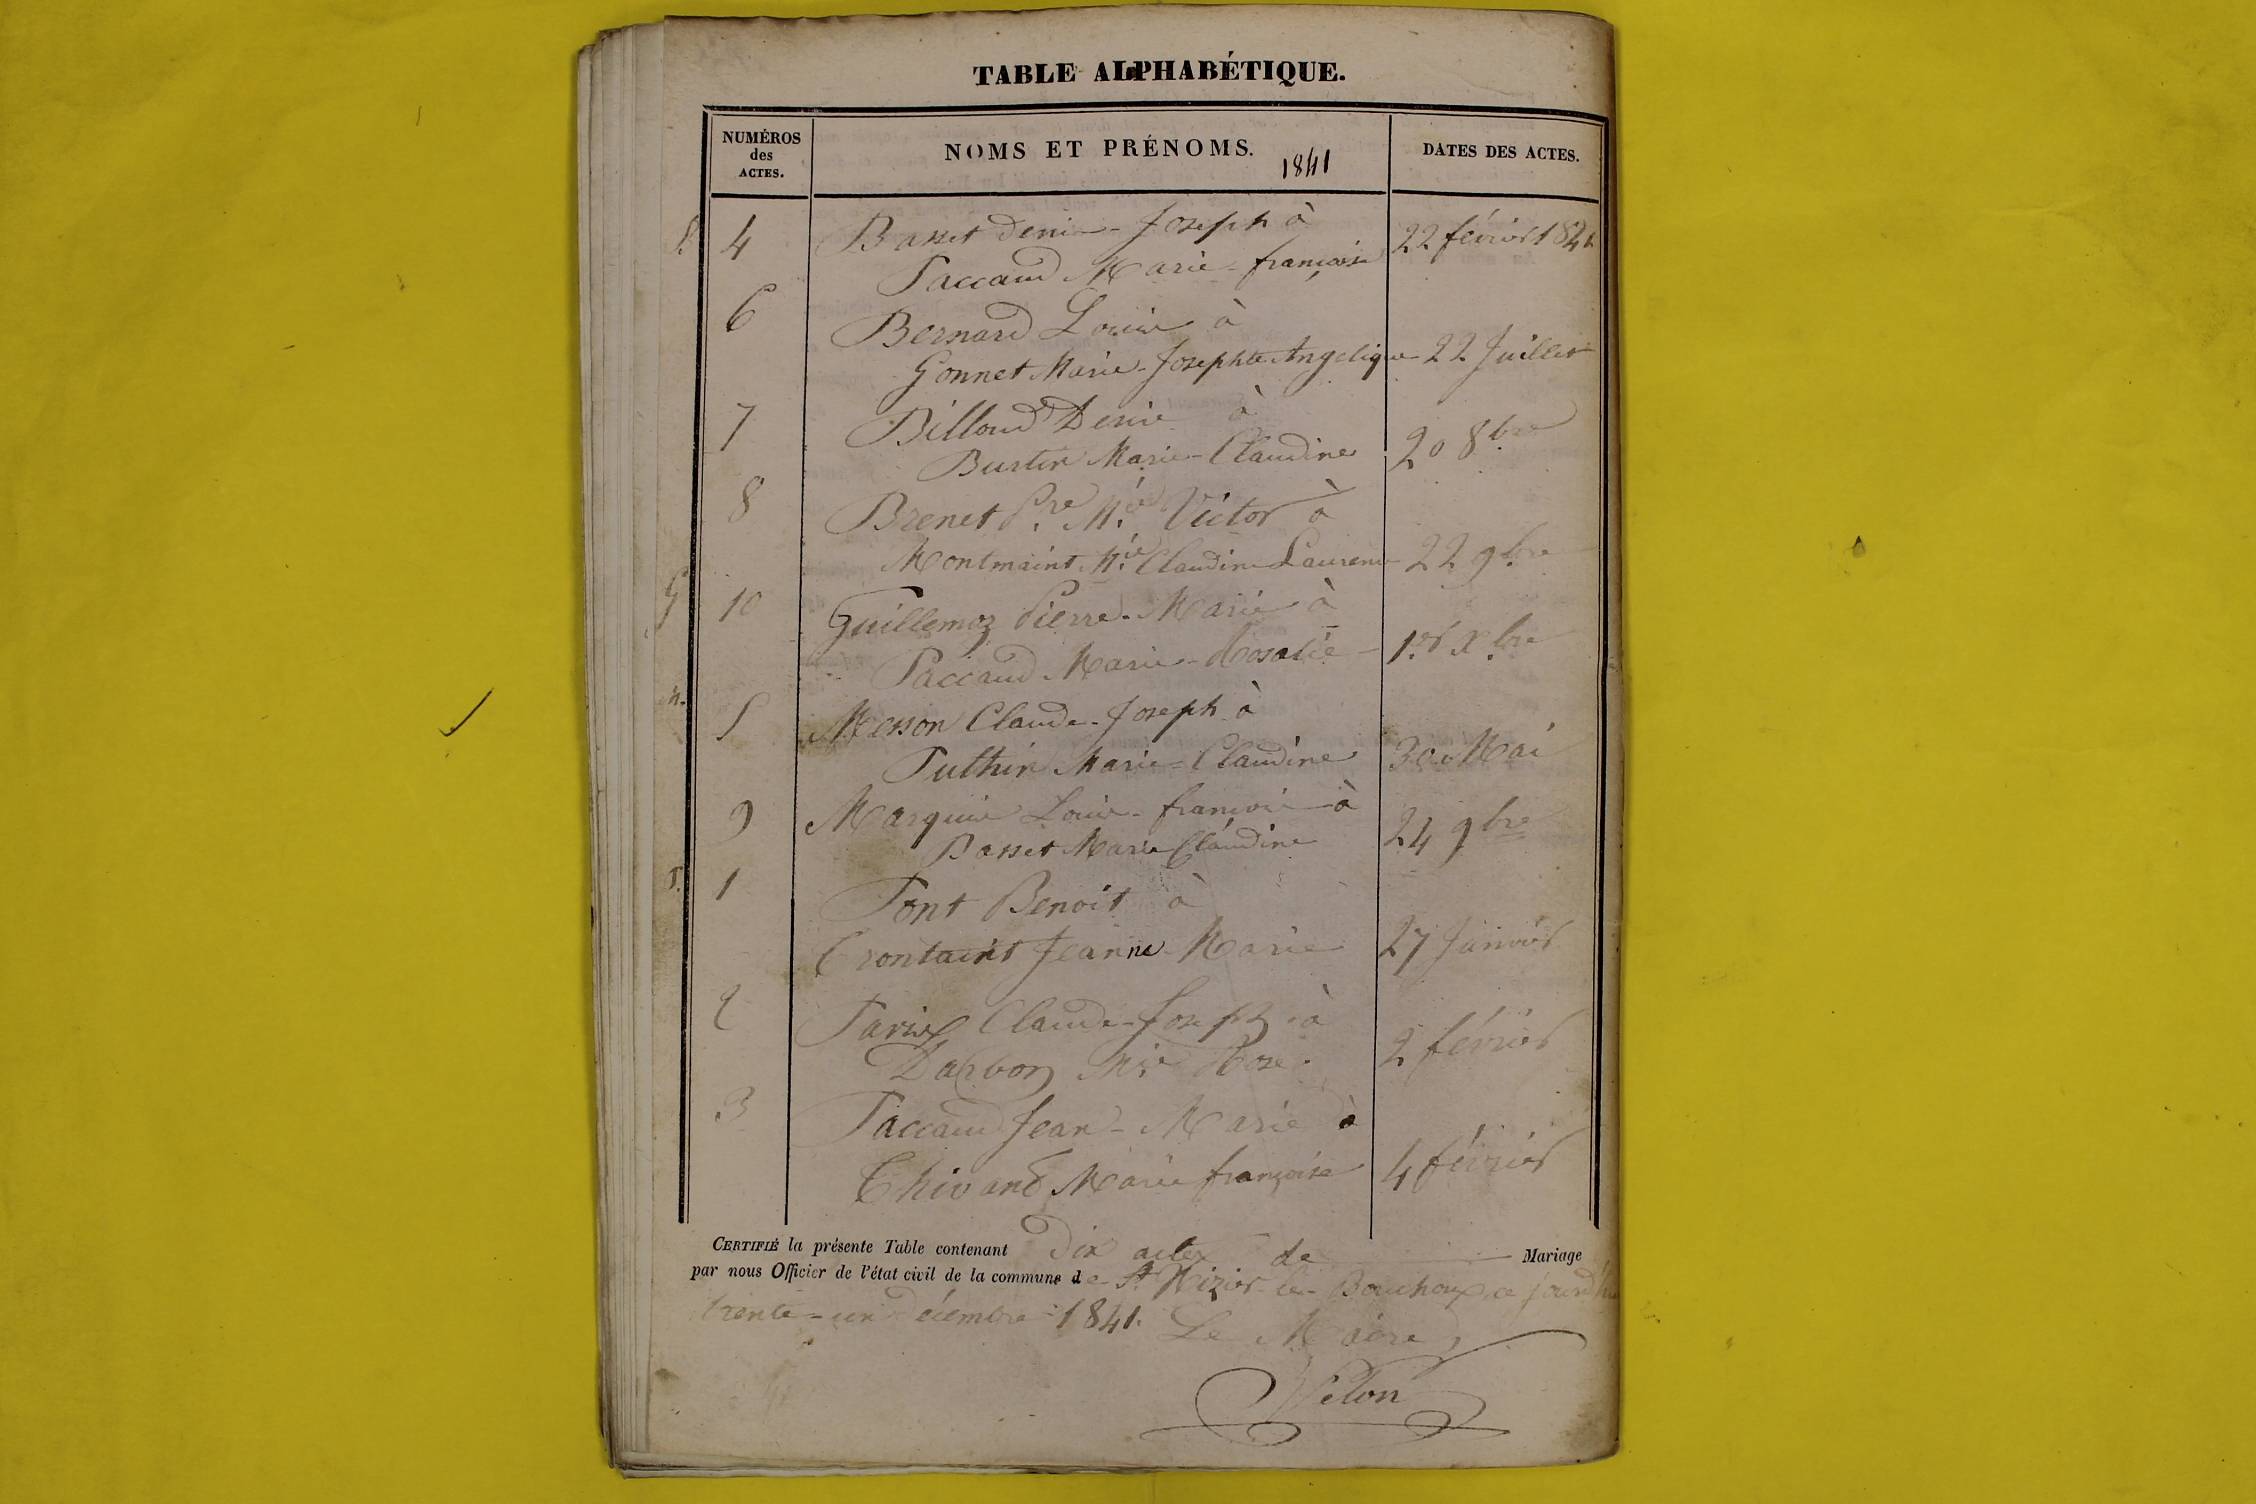 TABLE ALPHABÉTIQUE.
NUMÉROS des ACTES.
NOMS ET PRÉNOMS. 1841
DATES DES ACTES.
4 Basset Denis-Joseph à 22 février 1841
Paccaud Marie-françoise
6 Bernard Louis à
Gonnet Marie-Josephte Angelique 22 Juillet
7 Billoud Denis à
Burtin Marie-Claudine 20 8.bre
8 Brenet P.re M.ie Victor à
Montmaint M.ie Claudine Laurence 22 9.bre
G 10 Guillemoz Pierre-Marie à
Paccaud Marie-Rosalie 1.er X.bre
M. 5 Messon Claude-Joseph à
Puthin Marie-Claudine 30 Mai
9 Marquis Louis-françois à
Basset Marie Claudine 24 9bre
P. 1 Pont Benoit à
Jeanne-Marie 27 Janvier
2 Claude-Joseph à
Darbon M.ie Rose 2 février
3 Paccaud Jean-Marie à
Marie françoise 4 février
CERTIFIÉ la présente Table contenant Dix actes de Mariage
par nous Officier de l'état civil de la commune de St Nizier-le-Bouchoux, ce jourd'hui
trente-un Décembre 1841. Le Maire